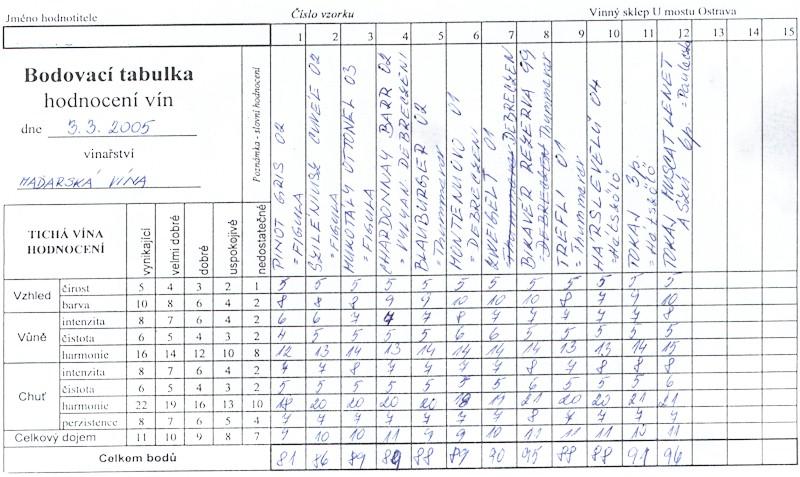 Jméno hodnotitele
Číslo vzorku
Vinný sklep U mostu Ostrava
1 2 3 4 5 6 7 8 9 10 11 12 13 14 15
Bodovací tabulka
hodnocení vín
dne 3.3.2005
vinařství
MAĎARSKÁ VÍNA
Poznámka - slovní hodnocení
PINOT GRIS 02
= FIGULA
CUVEÉ 02
= FIGULA
OTTONEL 03
= FIGULA
CHARDONNAY BARR 02
= VYLYAN DEBRECKENI
BLAUBURGER 02
= Thummerer
MONTENUOVO 01
= DEBRECKENI
ZWEIGELT 01
DEBRECKENI
BIKAVER REZERVA 99
Thummerer
TREFLI 01
= Thummerer
HARSLEVELÜ 04
TOKAJ 3p.
TOKAJ MUSCAT LENET
ASZU 6p.
TICHÁ VÍNA
HODNOCENÍ
vynikající velmi dobré dobré uspokojivé nedostatečné
Vzhled
čirost 5 4 3 2 1 5 5 5 5 5 5 5 5 5 5 5 5
barva 10 8 6 4 2 8 8 8 9 9 10 10 10 8 7 9 10
Vůně
intenzita 8 7 6 4 2 6 6 7 7 7 8 7 7 7 7 7 8
čistota 6 5 4 3 2 4 5 5 5 5 6 6 5 5 5 5 5
harmonie 16 14 12 10 8 12 13 14 13 14 14 14 14 13 13 14 15
Chuť
intenzita 8 7 6 4 2 7 7 8 7 7 7 7 8 7 8 8 8
čistota 6 5 4 3 2 5 5 5 5 5 5 5 6 5 5 5 6
harmonie 22 19 16 13 10 20 20 20 20 21 20 20 21 21
perzistence 8 7 6 5 4 7 7 7 7 7 7 7 8 7 7 7 7
Celkový dojem 11 10 9 8 7 9 10 10 11 9 9 10 11 11 11 10 11
Celkem bodů 81 86 89 89 88 89 90 95 88 88 91 96